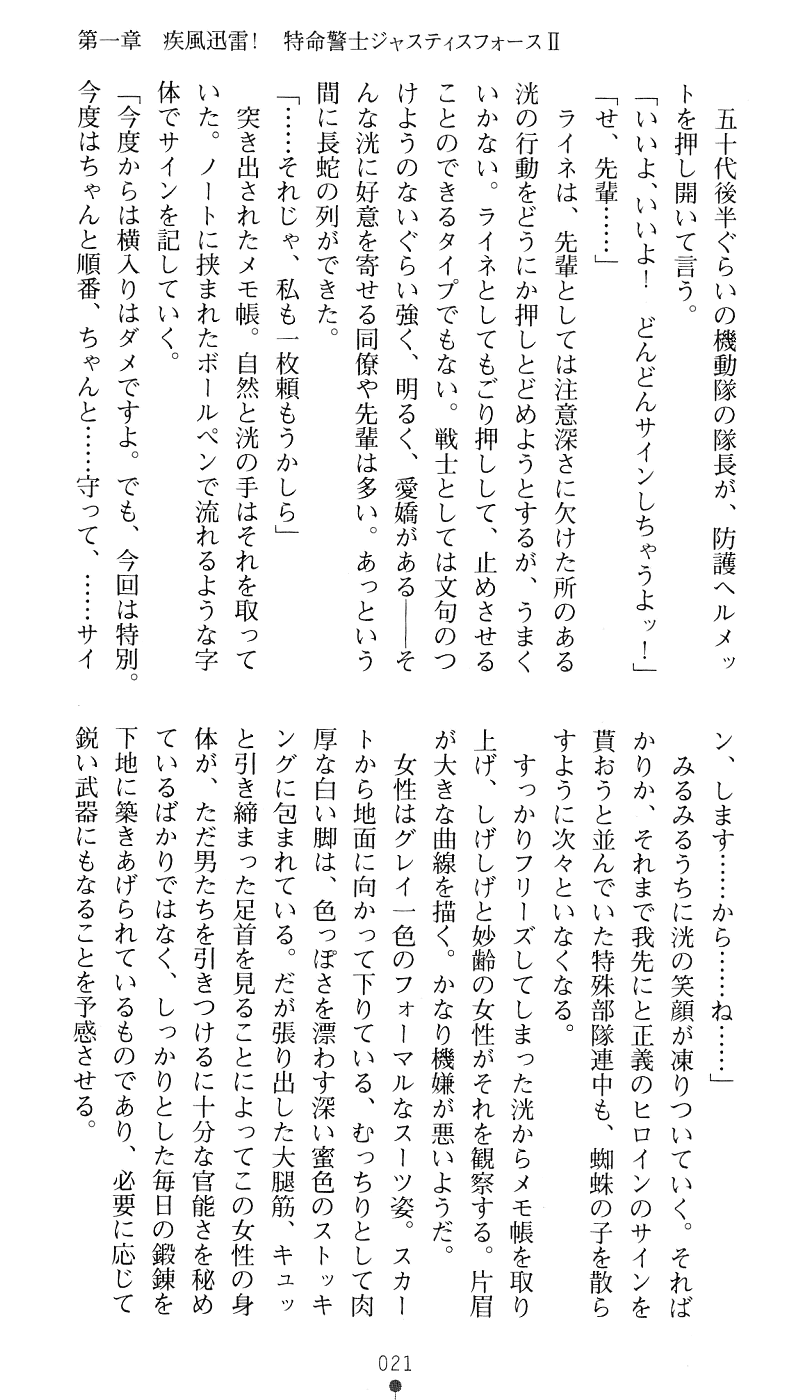 第一章　疾風迅雷！　特命警士ジャスティスフォースⅡ
　五十代後半ぐらいの機動隊の隊長が、防護ヘルメッ
トを押し開いて言う。
「いいよ、いいよ！　どんどんサインしちゃうよッ！」
「せ、先輩……」
　ライネは、先輩としては注意深さに欠けた所のある
洸の行動をどうにか押しとどめようとするが、うまく
いかない。ライネとしてもごり押しして、止めさせる
ことのできるタイプでもない。戦士としては文句のつ
けようのないぐらい強く、明るく、愛嬌がある――そ
んな洸に好意を寄せる同僚や先輩は多い。あっという
間に長蛇の列ができた。
「……それじゃ、私も一枚頼もうかしら」
　突き出されたメモ帳。自然と洸の手はそれを取って
いた。ノートに挟まれたボールペンで流れるような字
体でサインを記していく。
「今度からは横入りはダメですよ。でも、今回は特別。
今度はちゃんと順番、ちゃんと……守って、……サイ
ン、します……から……ね……」
　みるみるうちに洸の笑顔が凍りついていく。そればかりか、それまで我先にと正義のヒロインのサインを
貰おうと並んでいた特殊部隊連中も、蜘蛛の子を散ら
すように次々といなくなる。
　すっかりフリーズしてしまった洸からメモ帳を取り
上げ、しげしげと妙齢の女性がそれを観察する。片眉
が大きな曲線を描く。かなり機嫌が悪いようだ。
　女性はグレイ一色のフォーマルなスーツ姿。スカー
トから地面に向かって下りている、むっちりとして肉
厚な白い脚は、色っぽさを漂わす深い蜜色のストッキ
ングに包まれている。だが張り出した大腿筋、キュッ
と引き締まった足首を見ることによってこの女性の身
体が、ただ男たちを引きつけるに十分な官能さを秘め
ているばかりではなく、しっかりとした毎日の鍛錬を
下地に築きあげられているものであり、必要に応じて
鋭い武器にもなることを予感させる。
021